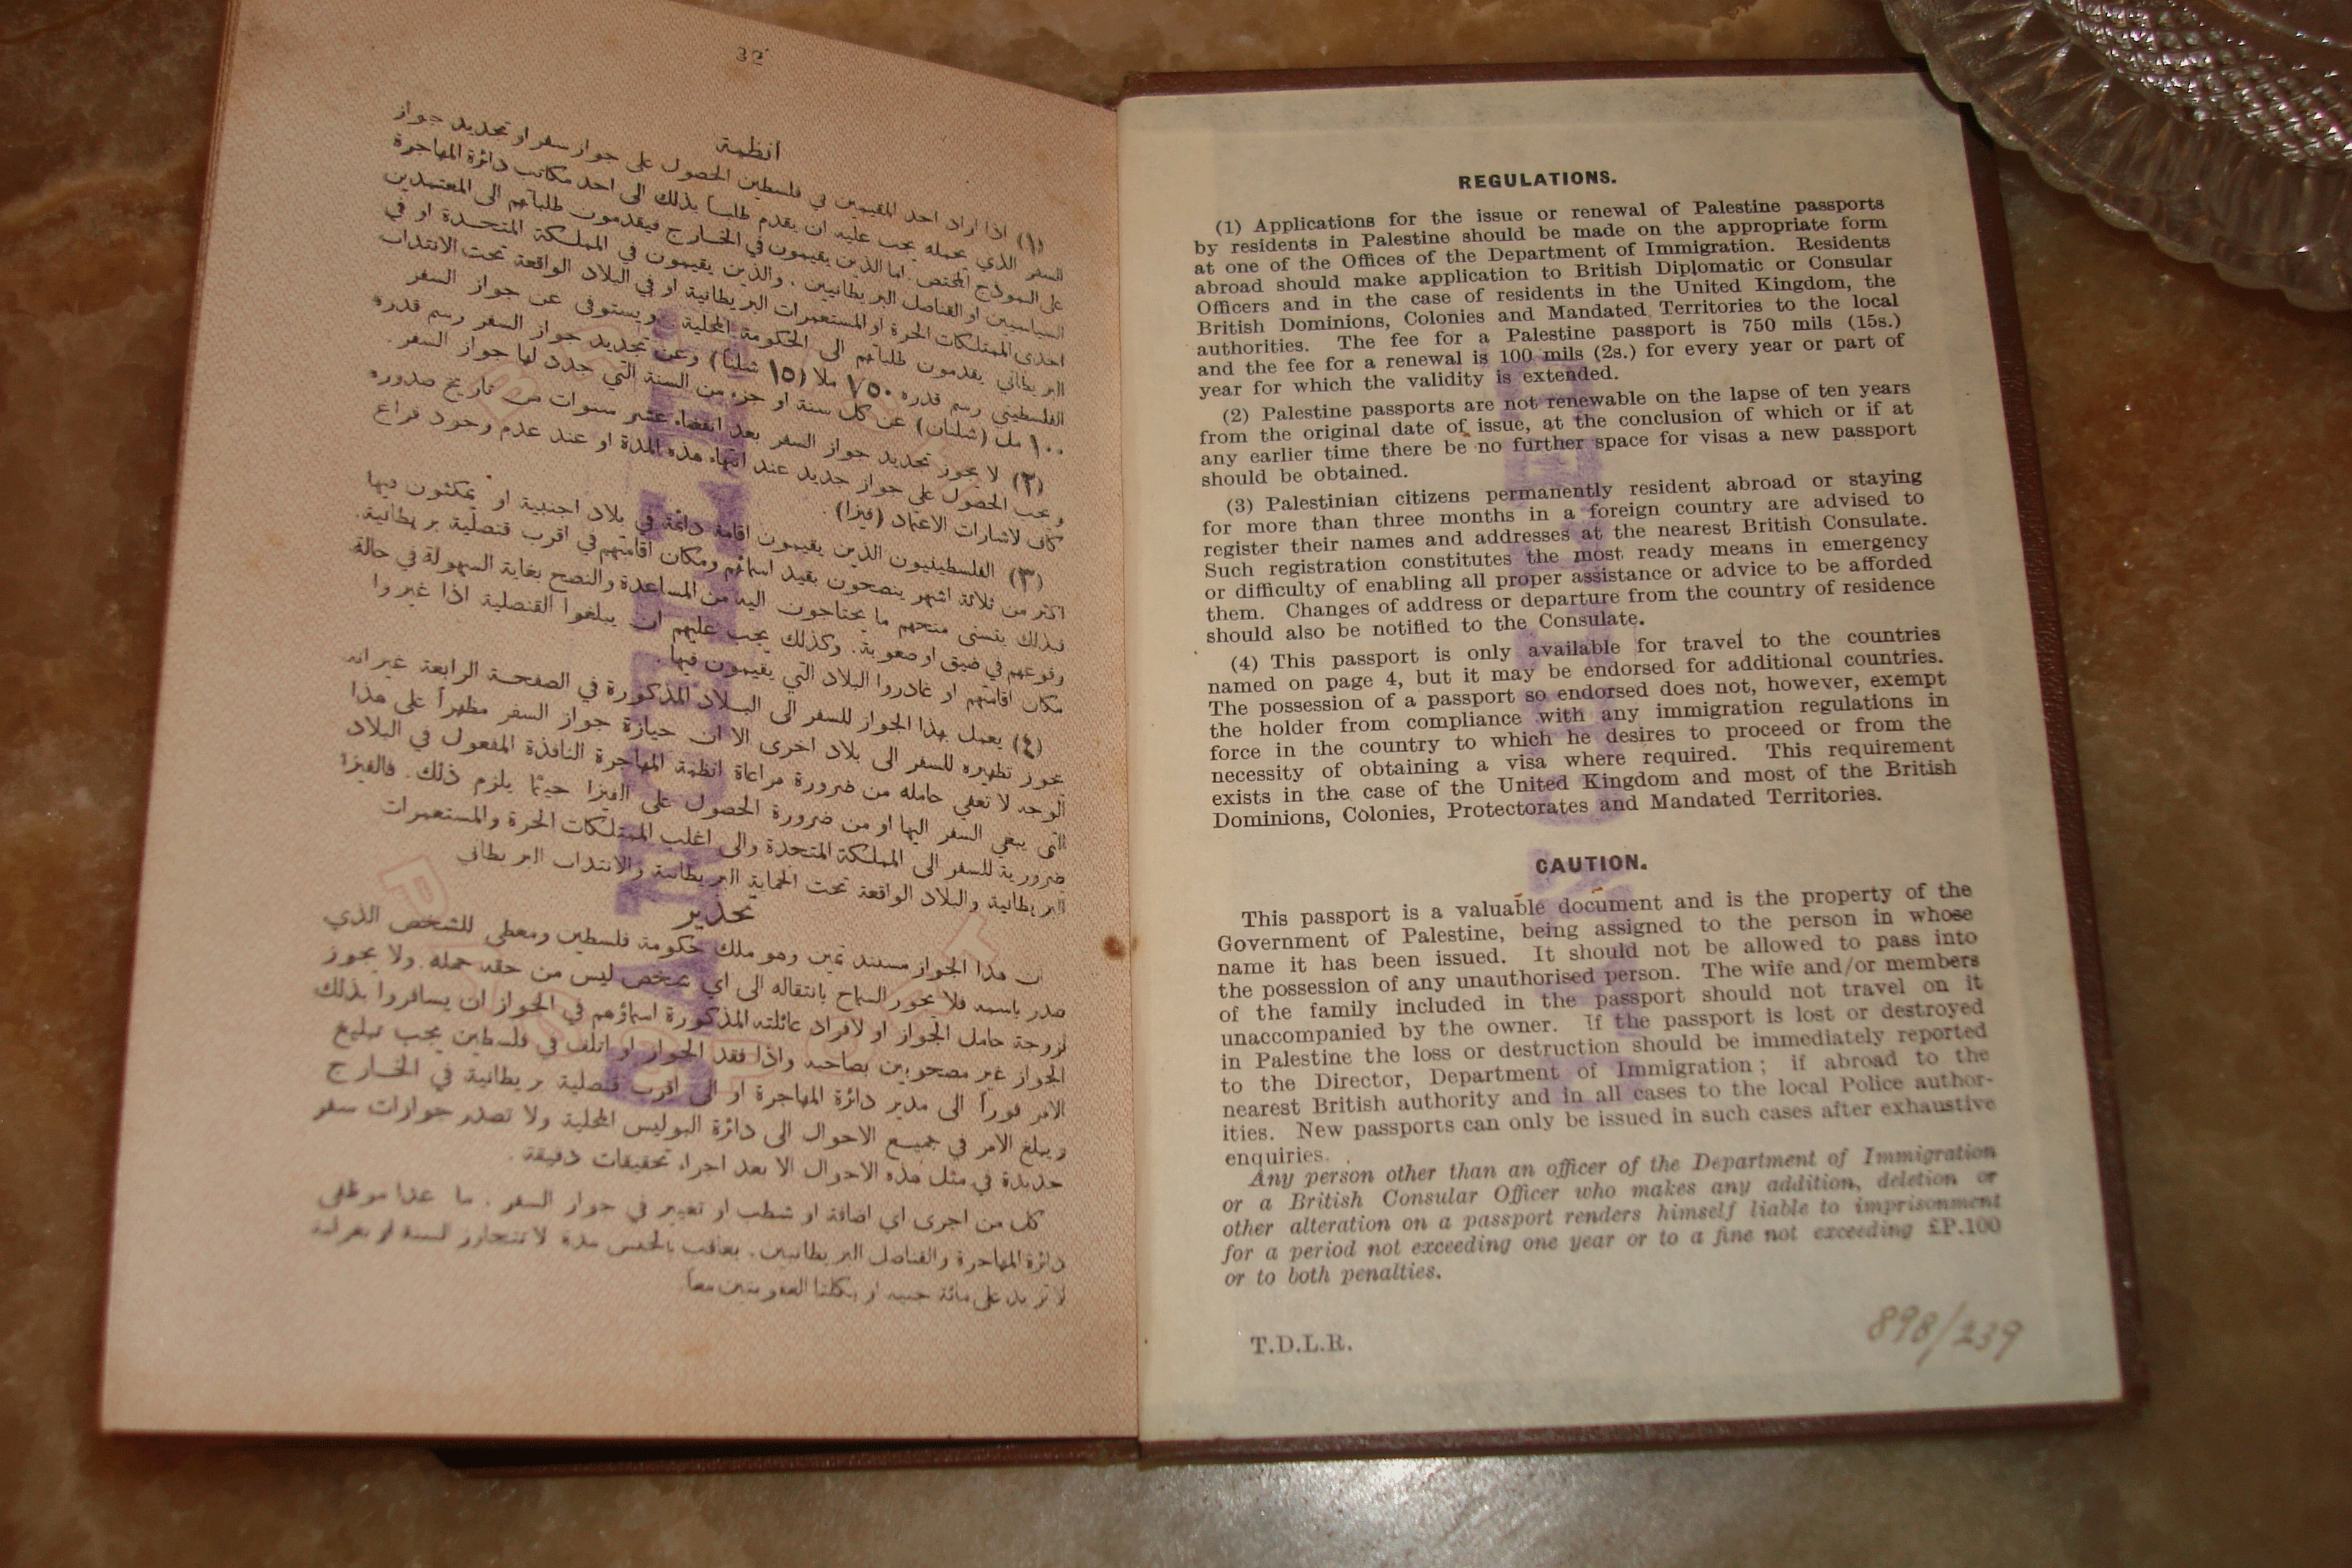 32
أنظمة
(١) اذا اراد احد المقيمين في فلسطين الحصول على جواز سفر او تجديد جواز
السفر الذي يحمله يجب عليه ان يقدم طلباً بذلك الى احد مكاتب دائرة المهاجرة
على النموذج المختص. اما الذين يقيمون في الخارج فيقدمون طلباتهم الى المعتمدين
السياسيين او القناصل البريطانيين. والذين يقيمون في المملكة المتحدة او في
احدى الممتلكات الحرة او المستعمرات البريطانية او في البلاد الواقعة تحت الانتداب
البريطاني يقدمون طلباتهم الى الحكومة المحلية. ويستوفى عن جواز السفر
الفلسطيني رسم قدره ٧٥٠ ملا (١٥ شلناً) وعن تجديد جواز السفر رسم قدره
١٠٠ مل (شلنان) عن كل سنة او جزء من السنة التي جدد لها جواز السفر.
(٢) لا يجوز تجديد جواز السفر بعد انقضاء عشر سنوات من تاريخ صدوره
ويجب الحصول على جواز جديد عند انتهاء هذه المدة او عند عدم وجود فراغ
كاف لاشارات الاعتماد (فيزا).
(٣) الفلسطينيون الذين يقيمون اقامة دائمة في بلاد اجنبية او يمكثون فيها
اكثر من ثلاثة اشهر ينصحون بقيد اسمائهم ومكان اقامتهم في اقرب قنصلية بريطانية.
فبذلك يتسنى منحهم ما يحتاجون اليه من المساعدة والنصح بغاية السهولة في حالة
وقوعهم في ضيق او صعوبة. وكذلك يجب عليهم ان يبلغوا القنصلية اذا غيروا
مكان اقامتهم او غادروا البلاد التي يقيمون فيها.
(٤) يعمل بهذا الجواز للسفر الى البلاد المذكورة في الصفحة الرابعة غير انه
يجوز تظهيره للسفر الى بلاد اخرى الا ان حيازة جواز السفر مظهراً على هذا
الوجه لا تعفي حامله من ضرورة مراعاة انظمة المهاجرة النافذة المفعول في البلاد
التي يبغي السفر اليها او من ضرورة الحصول على الفيزا حيثما يلزم ذلك. فالفيزا
ضرورية للسفر الى المملكة المتحدة والى اغلب الممتلكات الحرة والمستعمرات
البريطانية والبلاد الواقعة تحت الحماية البريطانية والانتداب البريطاني
تحذير
ان هذا الجواز مستند ثمين وهو ملك حكومة فلسطين ومعطى للشخص الذي
صدر باسمه فلا يجوز السماح بانتقاله الى اي شخص ليس من حقه حمله. ولا يجوز
لزوجة حامل الجواز او لافراد عائلته المذكورة اسماؤهم في الجواز ان يسافروا بذلك
الجواز غير مصحوبين بصاحبه واذا فقد الجواز او اتلف في فلسطين يجب تبليغ
الامر فوراً الى مدير دائرة المهاجرة او الى اقرب قنصلية بريطانية في الخارج
ويبلغ الامر في جميع الاحوال الى دائرة البوليس المحلية ولا تصدر جوازات سفر
جديدة في مثل هذه الاحوال الا بعد اجراء تحقيقات دقيقة.
كل من اجرى اي اضافة او شطب او تغيير في جواز السفر. ما عدا موظفي
دائرة المهاجرة والقناصل البريطانيين. يعاقب بالحبس مدة لا تتجاوز السنة او بغرامة
لا تزيد على مائة جنيه او بكلتا العقوبتين معاً
REGULATIONS.
(1) Applications for the issue or renewal of Palestine passports
by residents in Palestine should be made on the appropriate form
at one of the Offices of the Department of Immigration. Residents
abroad should make application to British Diplomatic or Consular
Officers and in the case of residents in the United Kingdom, the
British Dominions, Colonies and Mandated Territories to the local
authorities. The fee for a Palestine passport is 750 mils (15s.)
and the fee for a renewal is 100 mils (2s.) for every year or part of
year for which the validity is extended.
(2) Palestine passports are not renewable on the lapse of ten years
from the original date of issue, at the conclusion of which or if at
any earlier time there be no further space for visas a new passport
should be obtained.
(3) Palestinian citizens permanently resident abroad or staying
for more than three months in a foreign country are advised to
register their names and addresses at the nearest British Consulate.
Such registration constitutes the most ready means in emergency
or difficulty of enabling all proper assistance or advice to be afforded
them. Changes of address or departure from the country of residence
should also be notified to the Consulate.
(4) This passport is only available for travel to the countries
named on page 4, but it may be endorsed for additional countries.
The possession of a passport so endorsed does not, however, exempt
the holder from compliance with any immigration regulations in
force in the country to which he desires to proceed or from the
necessity of obtaining a visa where required. This requirement
exists in the case of the United Kingdom and most of the British
Dominions, Colonies, Protectorates and Mandated Territories.
CAUTION.
This passport is a valuable document and is the property of the
Government of Palestine, being assigned to the person in whose
name it has been issued. It should not be allowed to pass into
the possession of any unauthorised person. The wife and/or members
of the family included in the passport should not travel on it
unaccompanied by the owner. If the passport is lost or destroyed
in Palestine the loss or destruction should be immediately reported
to the Director, Department of Immigration; if abroad to the
nearest British authority and in all cases to the local Police author-
ities. New passports can only be issued in such cases after exhaustive
enquiries.
Any person other than an officer of the Department of Immigration
or a British Consular Officer who makes any addition, deletion or
other alteration on a passport renders himself liable to imprisonment
for a period not exceeding one year or to a fine not exceeding £P.100
or to both penalties.
T.D.L.R.
898/239